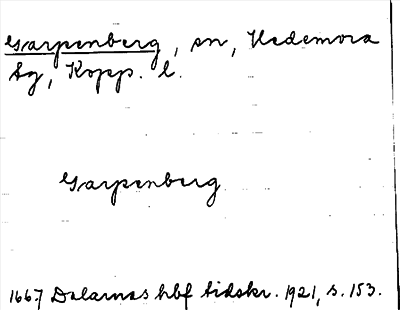 Garpenberg, sn, Hedemora
tg, Kopp. l.
Garpenberg
1667 Dalarnas hbf tidskr. 1921, s. 153.